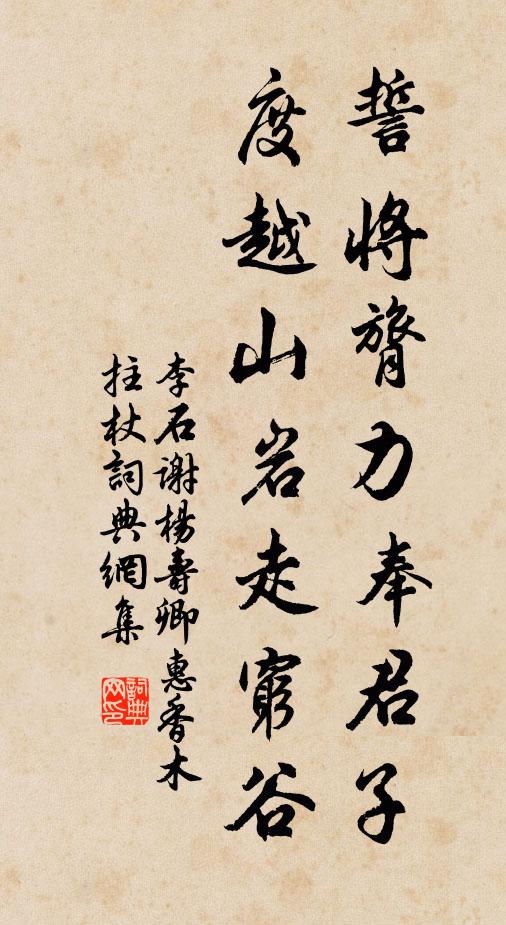 誓將膂力奉君子
度越山岩走窮谷
李石謝楊壽卿惠香木
拄杖詞典網集
詞典网印